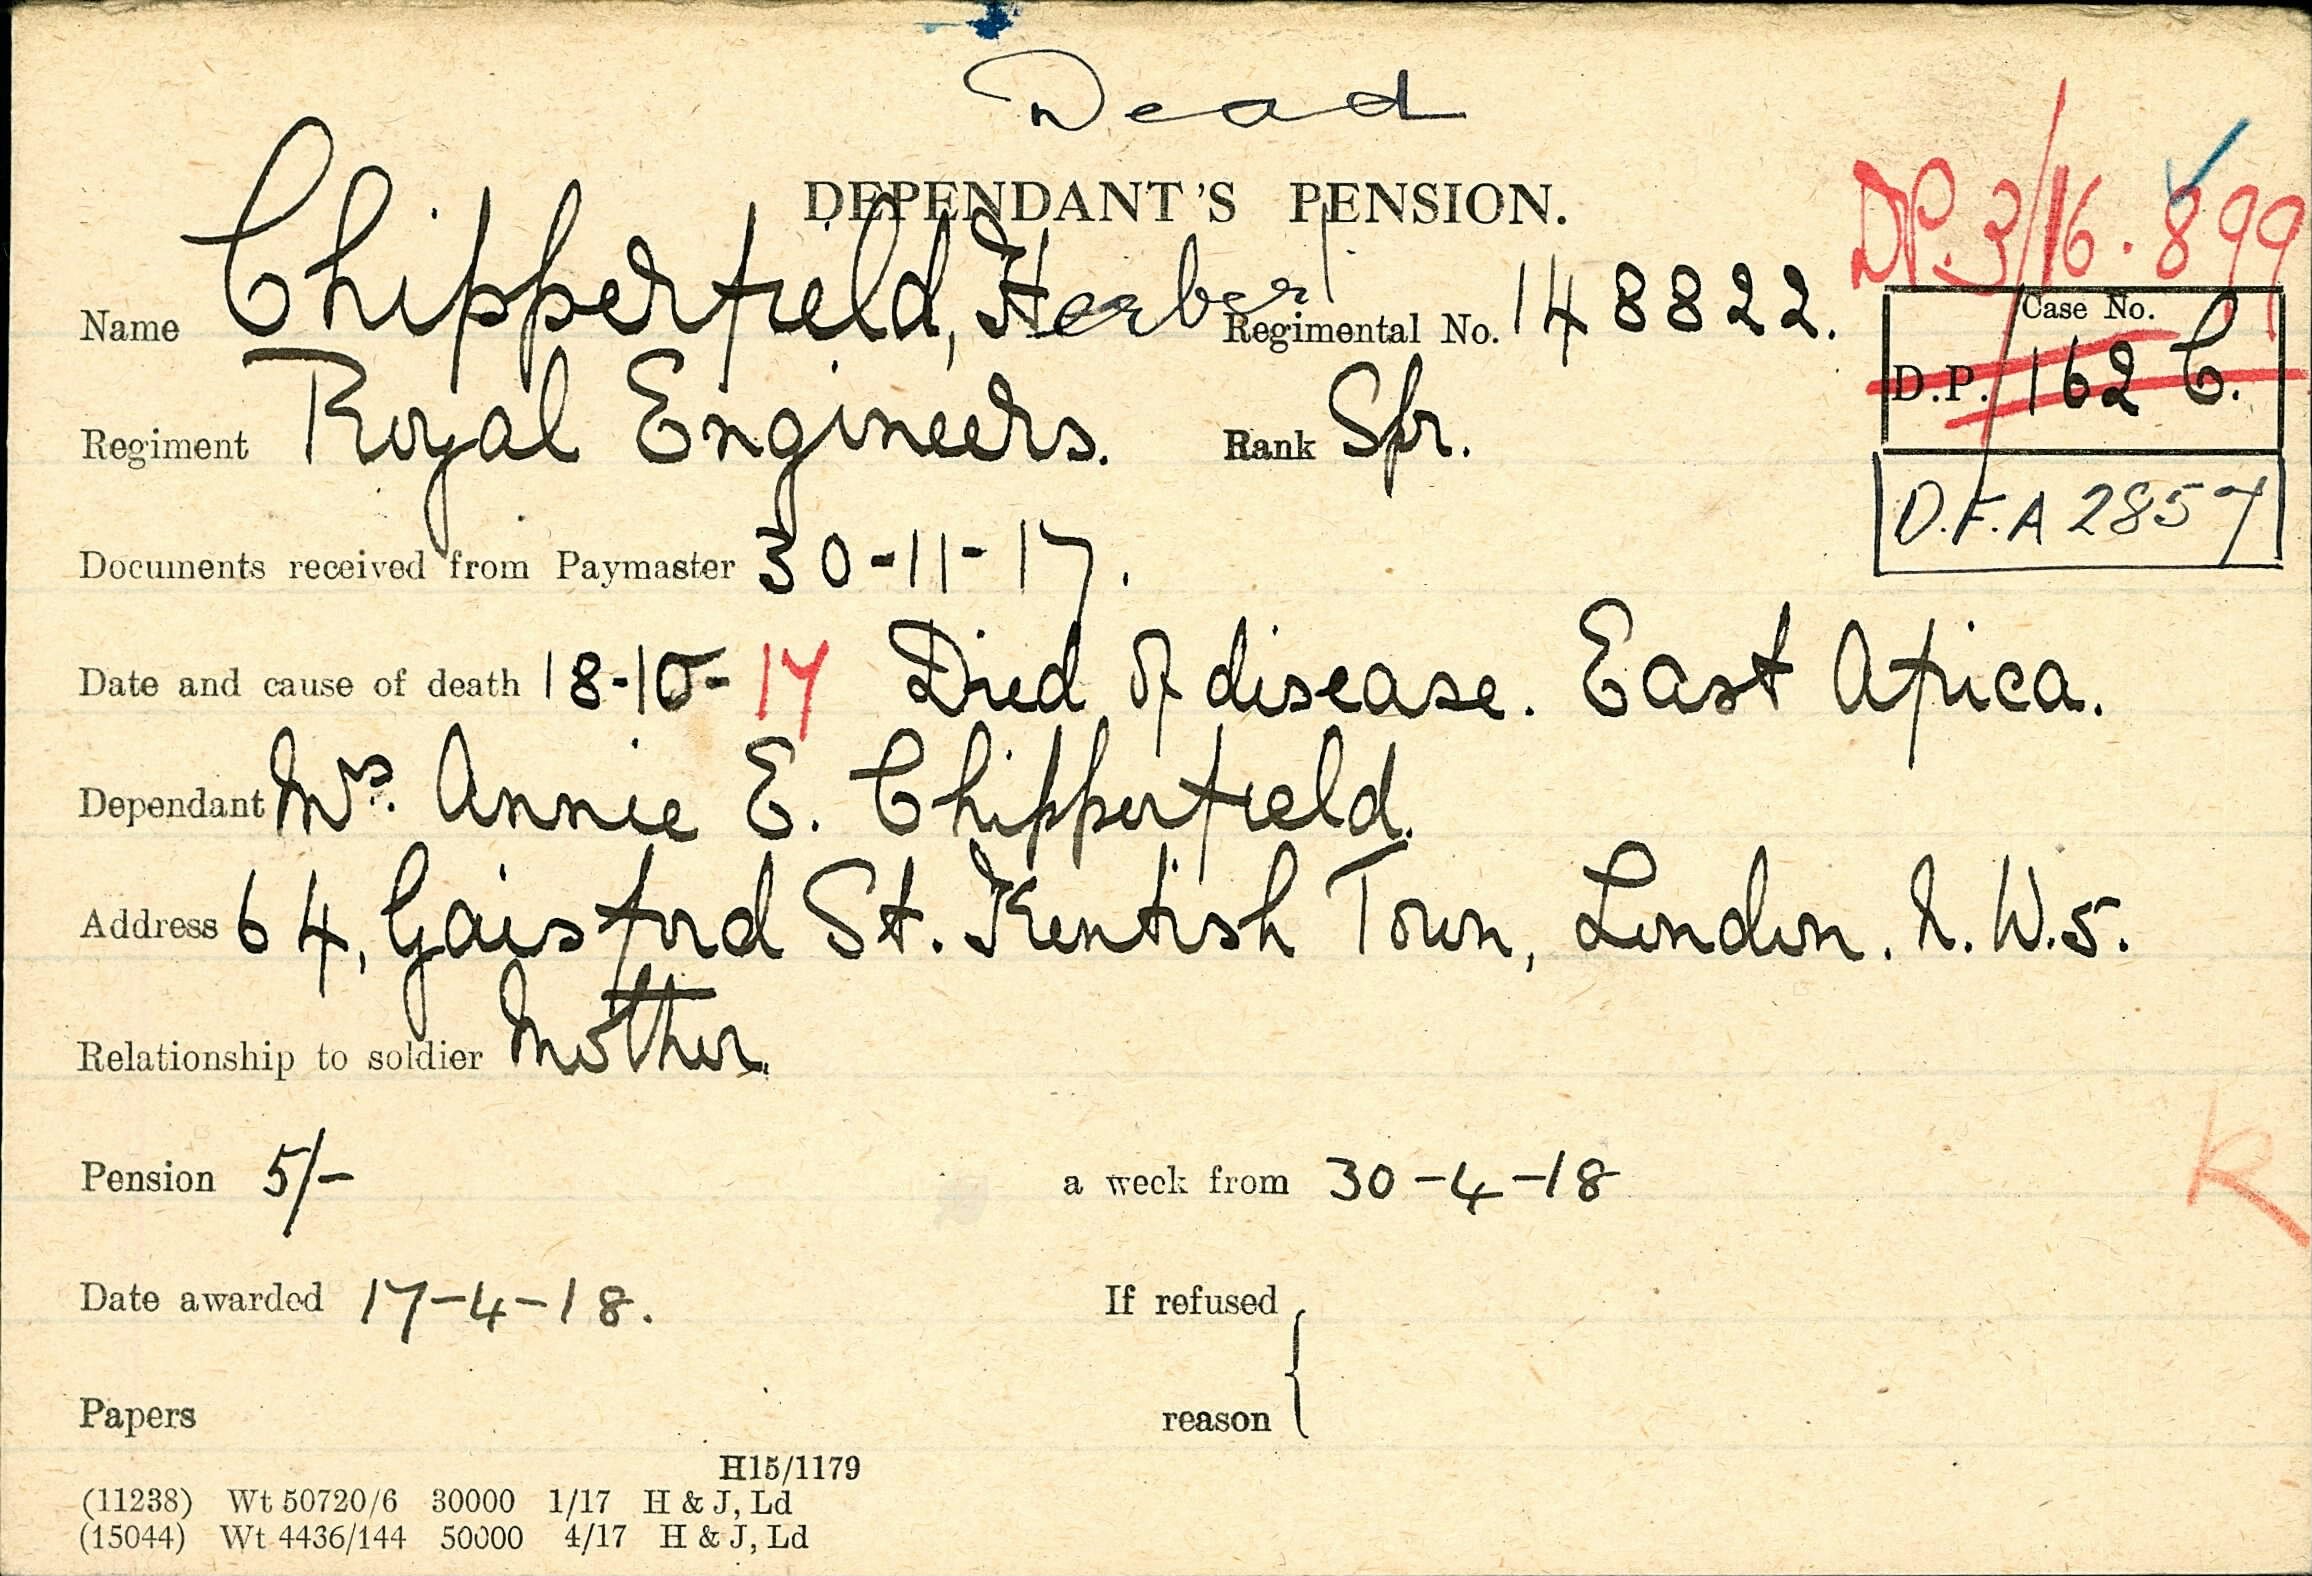 Dead
DEPENDANT'S PENSION.
DP.3/16.899
Name Chipperfield, Herbert. Regimental No. 148822.
Case No.
D.P. 162 C.
Regiment Royal Engineers. Rank Spr.
D.F.A 2857
Documents received from Paymaster 30-11-17.
Date and cause of death 18-10-17 Died of disease. East Africa.
Dependant Mrs. Annie E. Chipperfield.
Address 64, Gaisford St. Kentish Town, London. N.W.5.
Relationship to soldier Mother.
Pension 5/- a week from 30-4-18
R
Date awarded 17-4-18. If refused
Papers reason
H15/1179
(11238) Wt 50720/6 30000 1/17 H & J, Ld
(15044) Wt 4436/144 50000 4/17 H & J, Ld